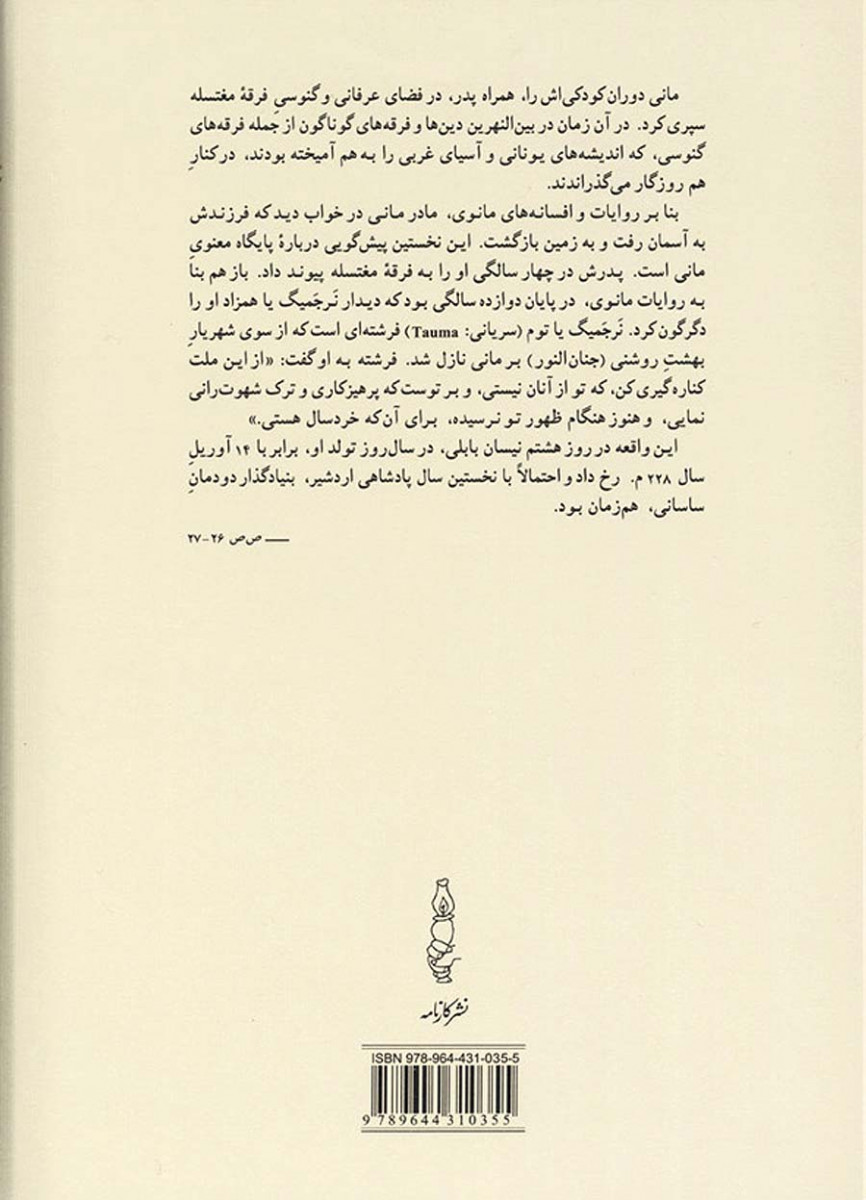 مانی دوران کودکی‌اش را، همراه پدر، در فضای عرفانی و گنوسیِ فرقهٔ مغتسله
سپری کرد. در آن زمان در بین‌النهرین دین‌ها و فرقه‌های گوناگون از جمله فرقه‌های
گنوسی، که اندیشه‌های یونانی و آسیای غربی را به هم آمیخته بودند، در کنارِ
هم روزگار می‌گذراندند.
بنا بر روایات و افسانه‌های مانوی، مادر مانی در خواب دید که فرزندش
به آسمان رفت و به زمین بازگشت. این نخستین پیش‌گویی دربارهٔ پایگاه معنویِ
مانی است. پدرش در چهار سالگی او را به فرقهٔ مغتسله پیوند داد. باز هم بنا
به روایات مانوی، در پایان دوازده سالگی بود که دیدار نَرجَمیگ یا همزاد او را
دگرگون کرد. نَرجَمیگ یا توم (سریانی: Tauma) فرشته‌ای است که از سوی شهریارِ
بهشتِ روشنی (جنان‌النور) بر مانی نازل شد. فرشته به او گفت: «از این ملت
کناره‌گیری کن، که تو از آنان نیستی، و بر توست که پرهیزکاری و ترک شهوت‌رانی
نمایی، و هنوز هنگام ظهور تو نرسیده، برای آن‌که خردسال هستی.»
این واقعه در روز هشتم نیسان بابلی، در سال‌روز تولد او، برابر با ۱۴ آوریلِ
سال ۲۲۸ م. رخ داد و احتمالاً با نخستین سال پادشاهی اردشیر، بنیادگذار دودمانِ
ساسانی، هم‌زمان بود.
ـــ ص‌ص ۲۶-۲۷
نشر کارنامه
ISBN 978-964-431-035-5
9 789644 310355